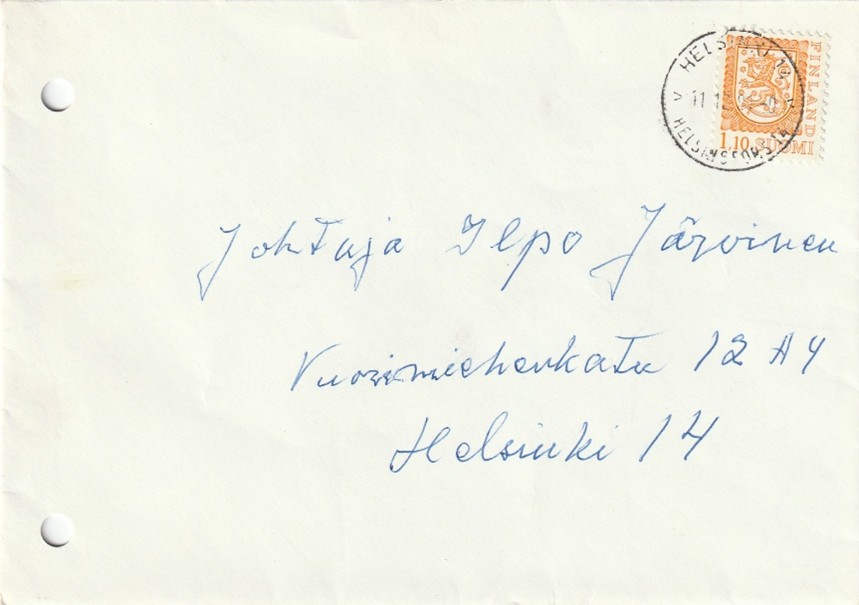 HELSINKI 10
11.12
HELSINGFORS
FINLAND
1,10 SUOMI
Johtaja Ilpo Järvinen
Vuorimiehenkatu 12 A 4
Helsinki 14